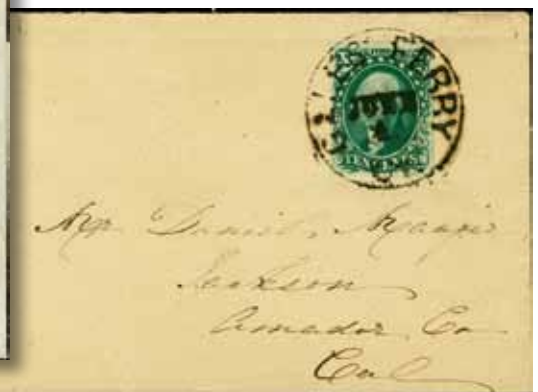 GALES FERRY
JUNE
4
TEN CENTS
Mr. Daniel
Jackson
Amador Co
Cal